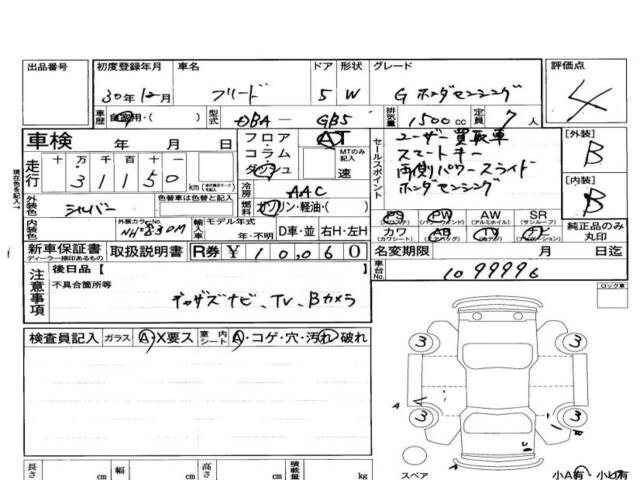 出品番号 初度登録年月 車名 ドア 形状 グレード 評価点
30年12月 フリード 5 W G ホンダセンシング 4
車歴 自家用・( ) 型式 DBA－GB5 排気量 1500cc 定員 7人
車検 年 月 日 フロア・コラム・ダッシュ AT MTのみ記入 速 セールスポイント ユーザー買取車 [外装] B
スマートキー
両側パワースライド
ホンダセンシング
走行 十 万 千 百 十 km
3 1 1 5 0
冷房 AAC [内装] B
現在色を記入→ 外装色 シルバー 色替車は色替と記入 燃料 ガソリン・軽油・( )
PS PW AW SR 純正品のみ丸印
(パワーウインドウ) (アルミホイル) (サンルーフ)
内装色 外装カラーNo. NH-830M 輸入車 モデル年式 年・不明 D車・並 右H・左H カワ AB TV ナビ
(カワシート) (エアバッグ)
新車保証書 取扱説明書 R券 ¥ 10,060 名変期限 月 日迄
ディーラー捺印あるもの
注意事項 後日品【 】 車台No. 1099996
不具合箇所等 ロック車
ギャザズナビ、TV、Bカメラ
検査員記入 ガラス A・X要ス 室内シート A・コゲ・穴・汚れ・破れ
3 3
3 3
A
B
U
A
スペア 小A有・小U有
長さ cm 幅 cm 高さ cm 積載量 kg